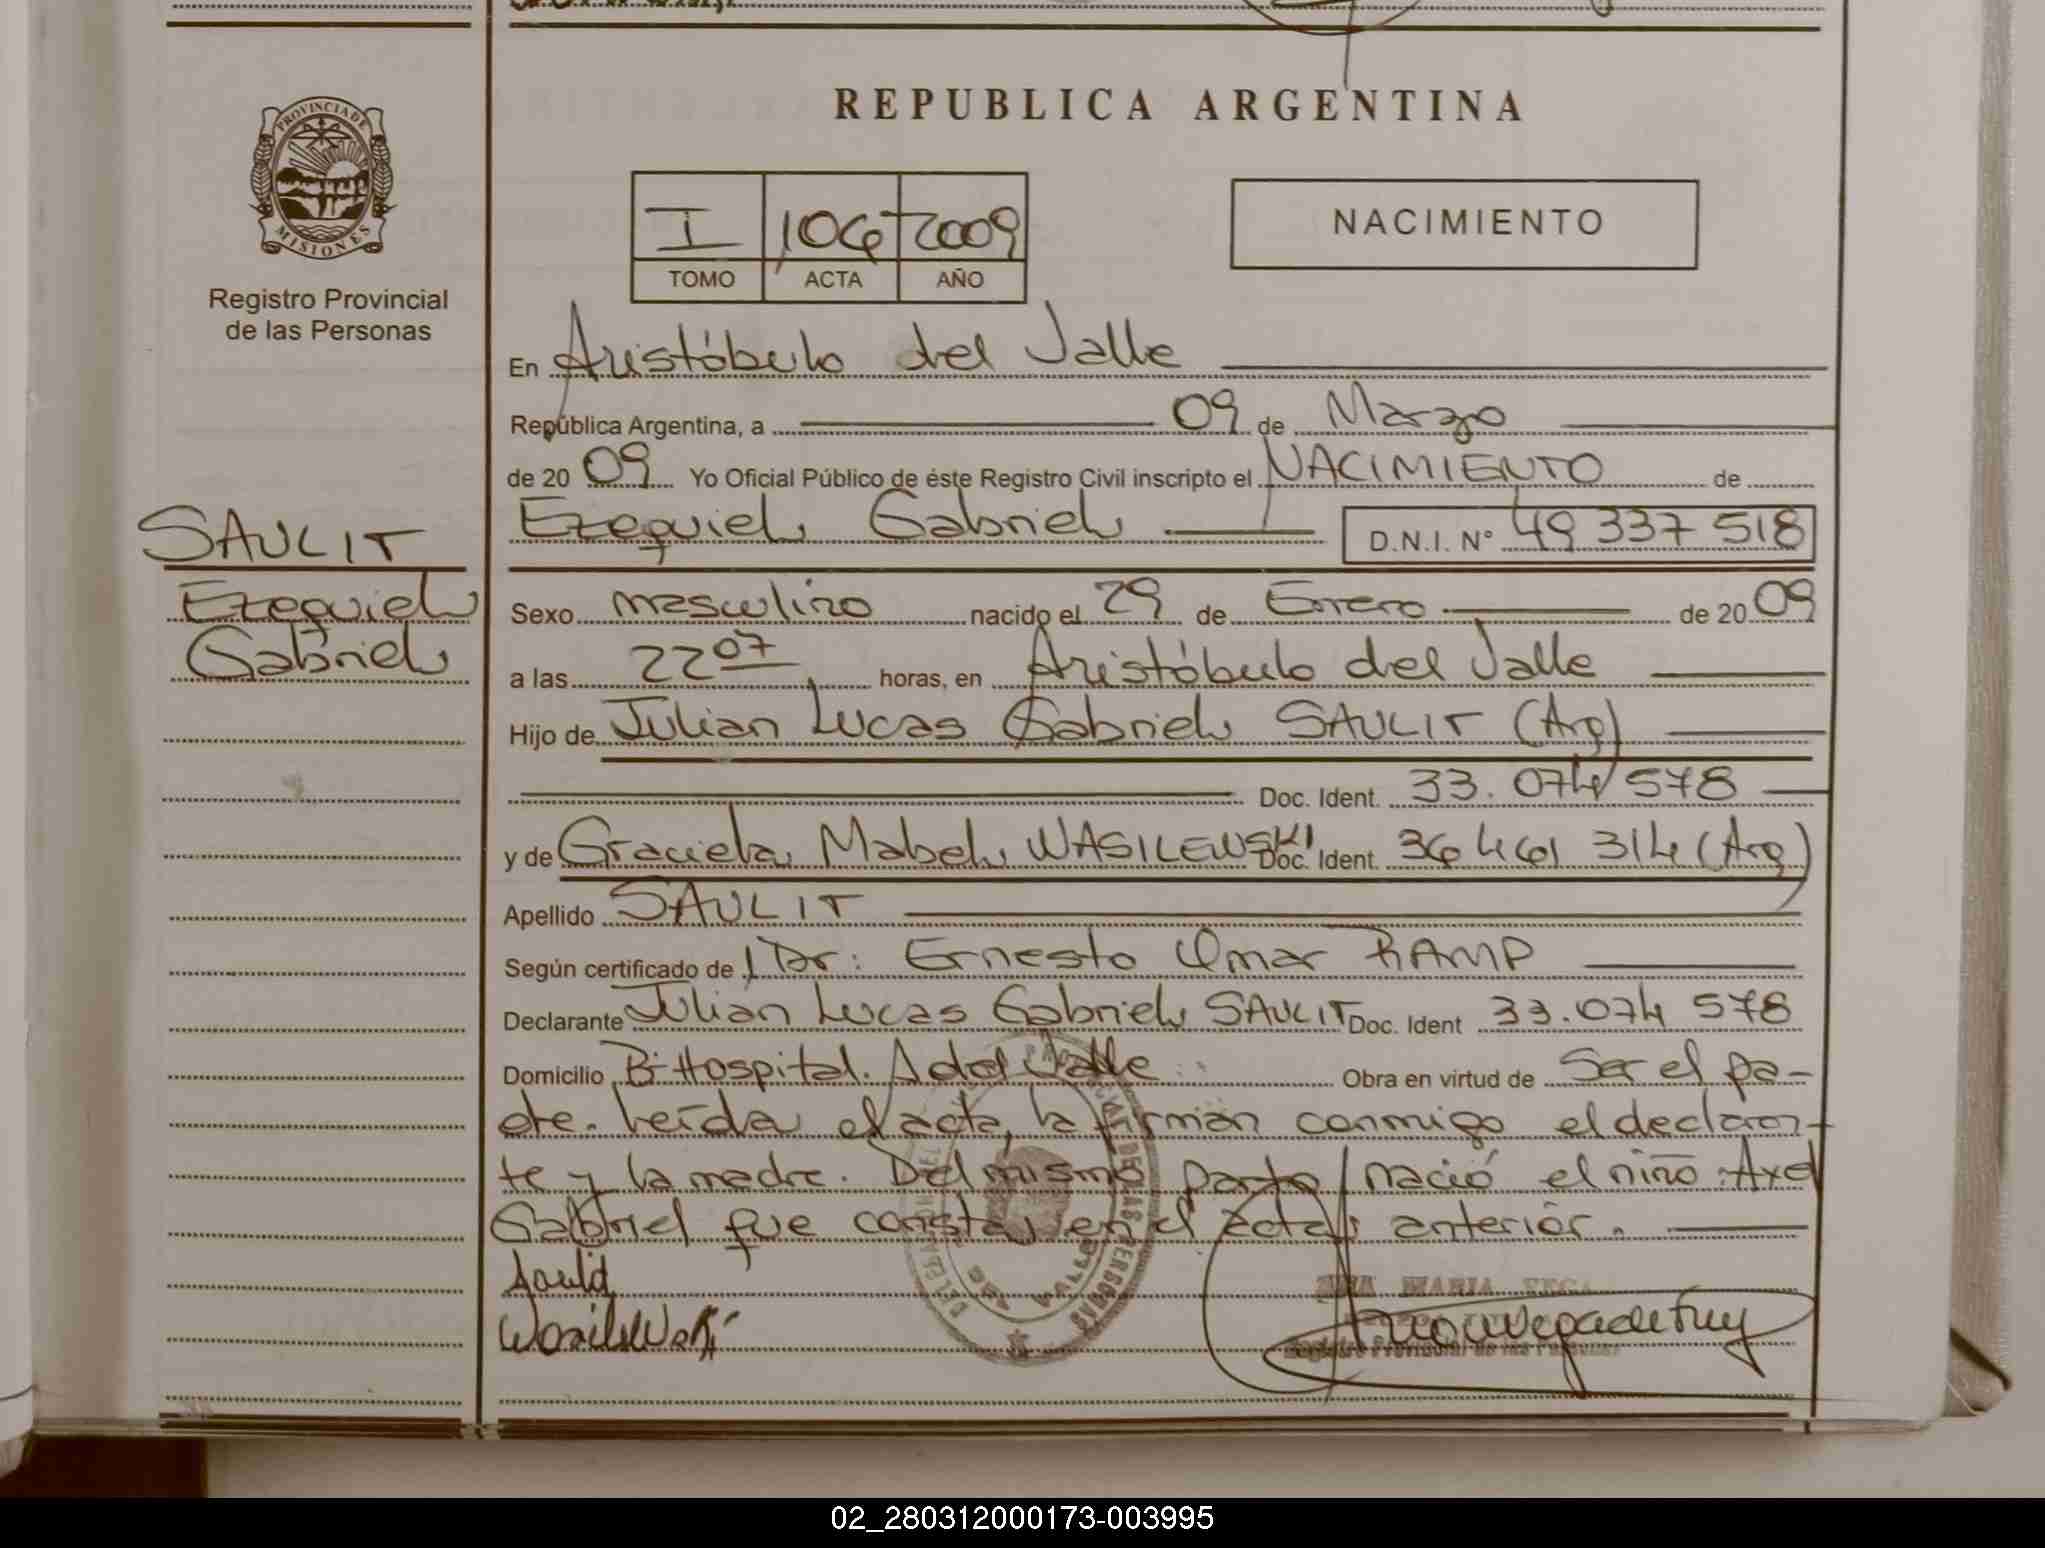 PROVINCIA DE
MISIONES
Registro Provincial
de las Personas
SAULIT
Ezequiel
Gabriel
REPUBLICA ARGENTINA
I 106 2009
TOMO ACTA AÑO
NACIMIENTO
En Aristóbulo del Valle
República Argentina, a 09 de Marzo
de 2009 Yo Oficial Público de éste Registro Civil inscripto el NACIMIENTO de
Ezequiel Gabriel D.N.I. N° 49 337 518
Sexo masculino nacido el 29 de Enero de 2009
a las 22 07 horas, en Aristóbulo del Valle
Hijo de Julian Lucas Gabriel SAULIT (Arg)
Doc. Ident. 33.074 578
y de Graciela Mabel WASILEWSKI Doc. Ident. 36 461 314 (Arg)
Apellido SAULIT
Según certificado de Dr: Ernesto Omar RAMP
Declarante Julian Lucas Gabriel SAULIT Doc. Ident 33.074 578
Domicilio Bº Hospital. A del Valle Obra en virtud de Ser el pa-
dre. Leída el acta, la firman conmigo el declaran-
te y la madre. Del mismo parto nació el niño: Axel
Gabriel que consta en el acta anterior.
Saulit
Wasilewski
ANA MARIA VEGA
Registro Provincial de las Personas
02_280312000173-003995